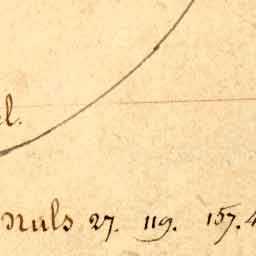 el.
nuls 27. 119. 157. 4